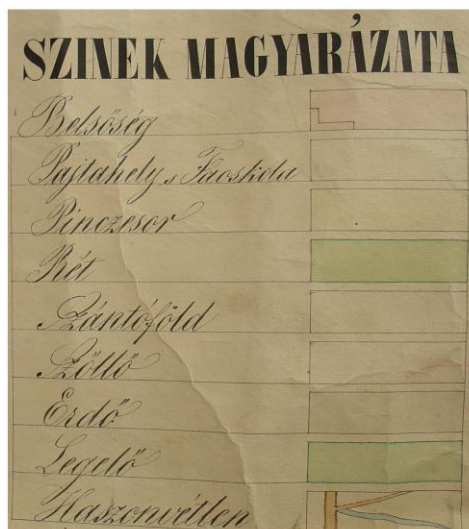 SZINEK MAGYARÁZATA
Belsőség
Pajtahely s Faoskola
Pinczesor
Rét
Szántóföld
Szőllő
Erdő
Legelő
Haszonvétlen